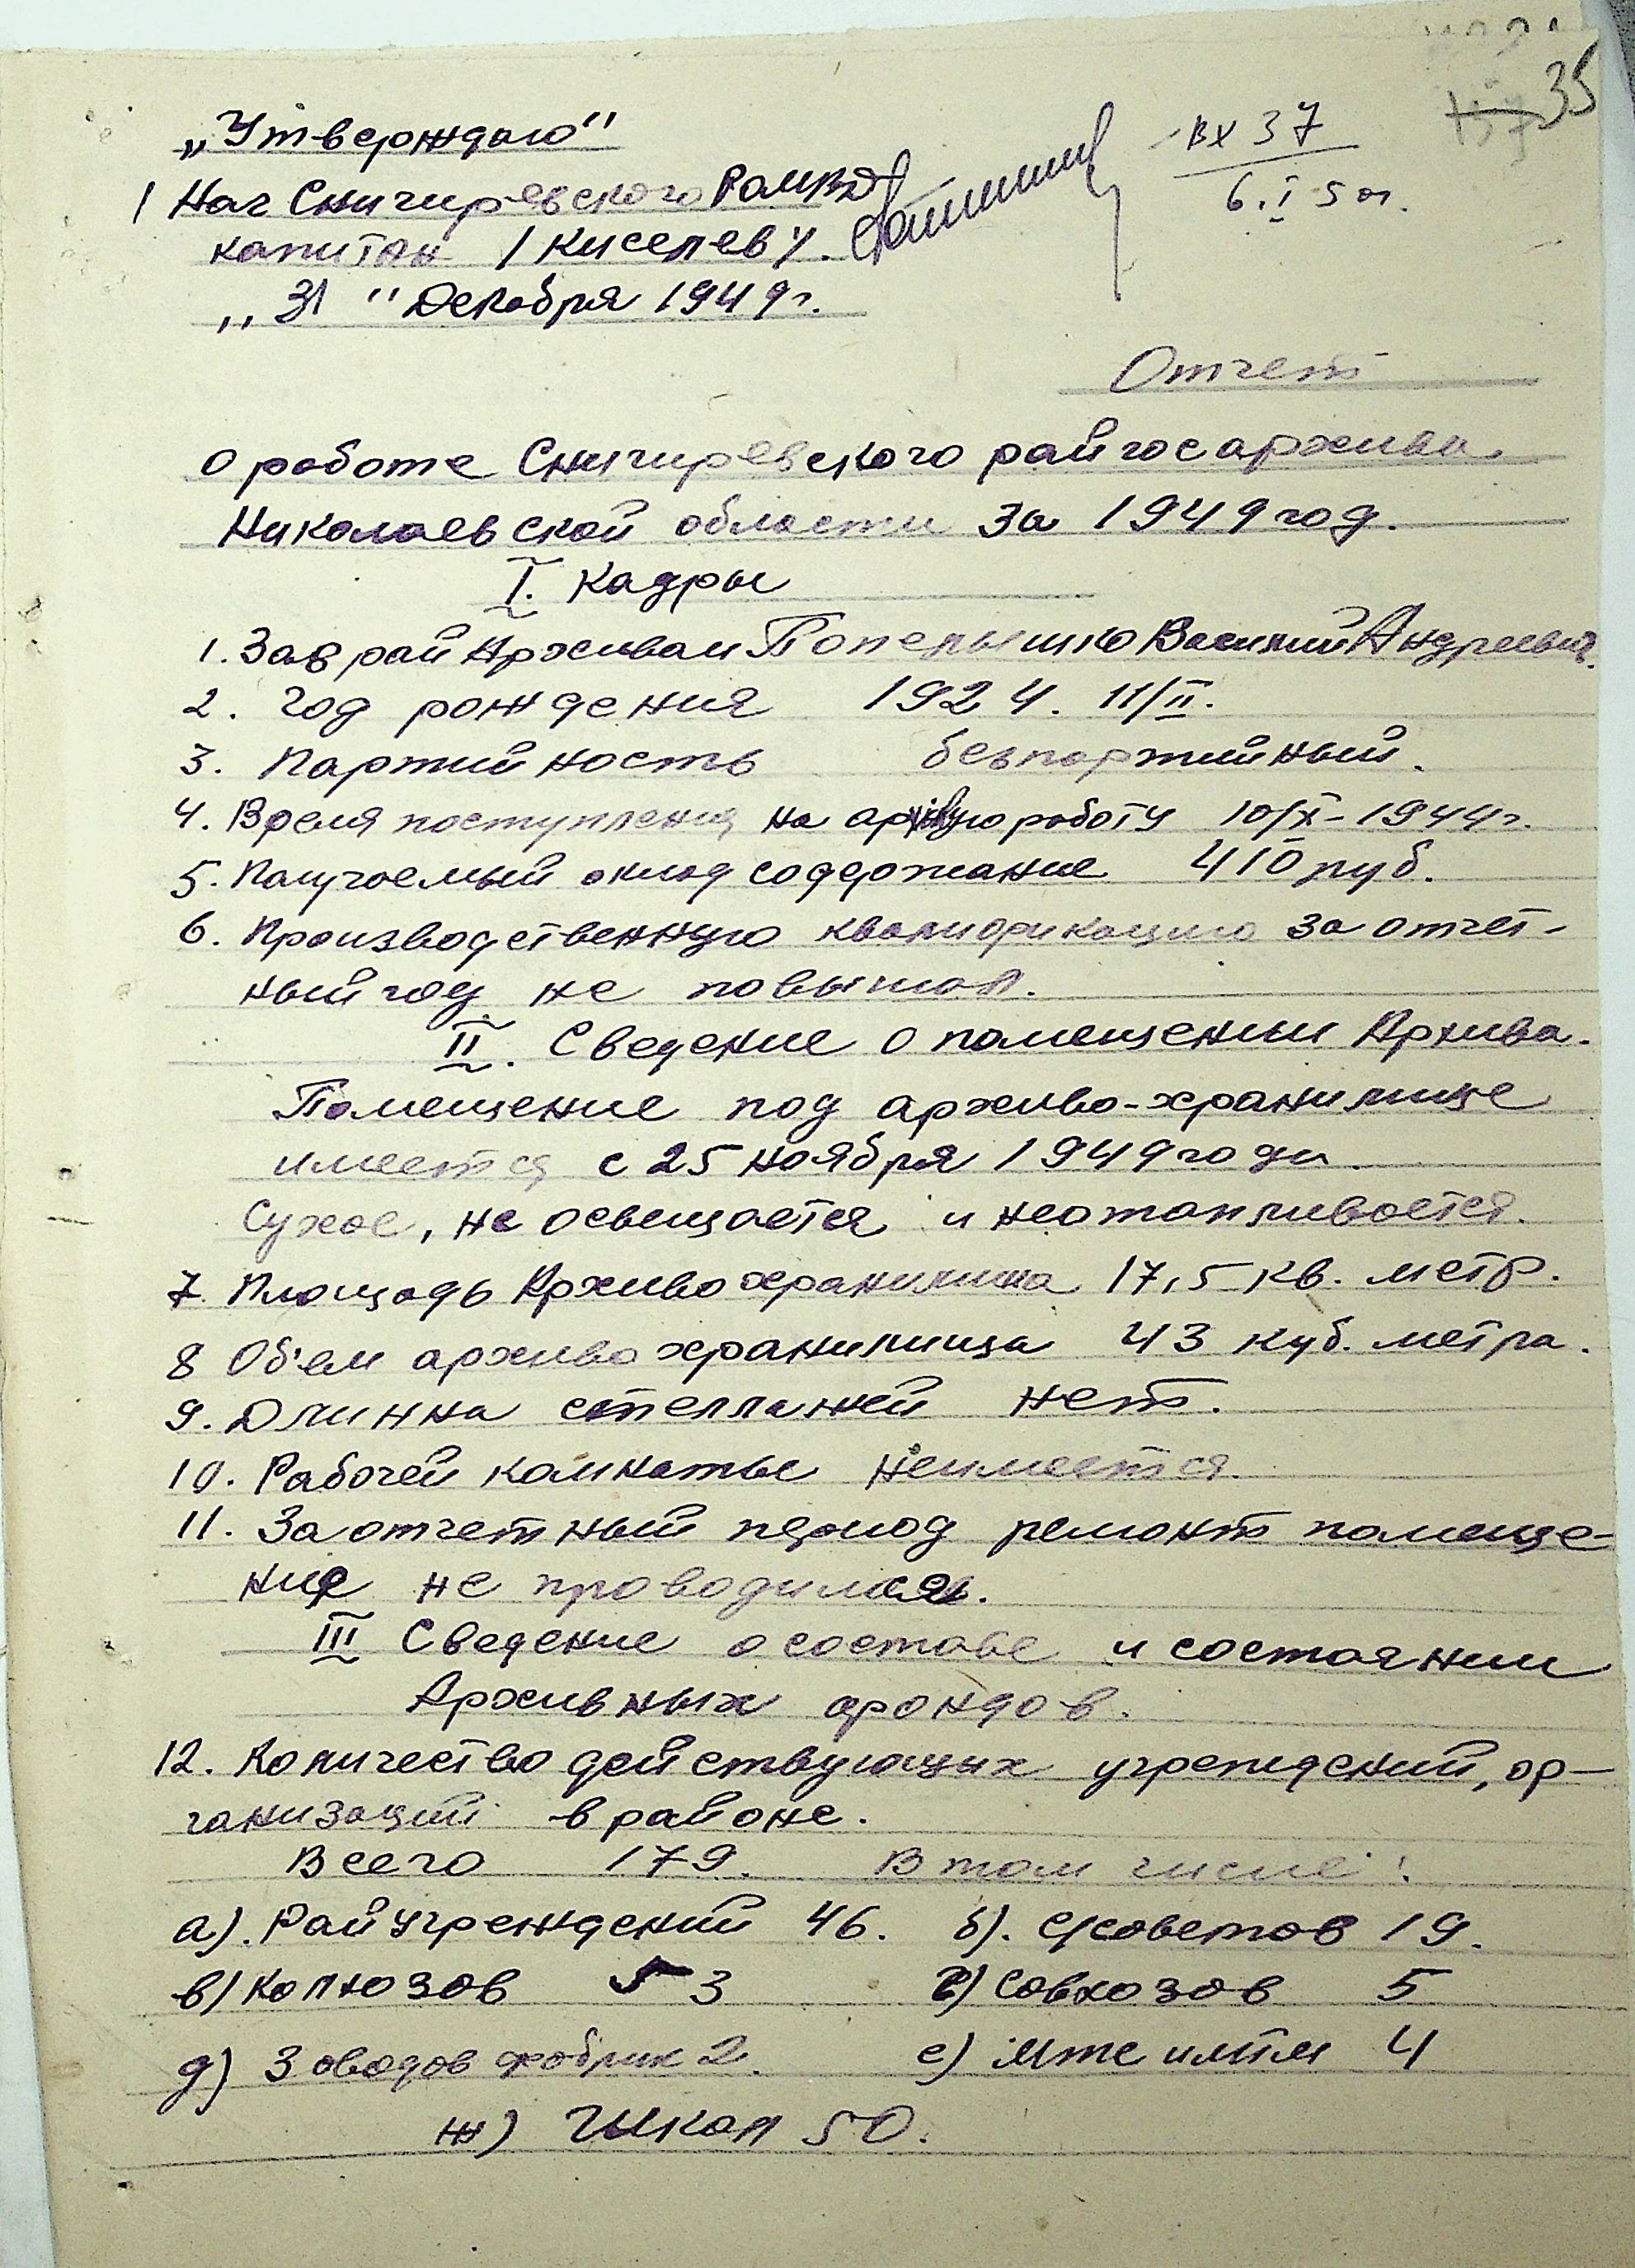 35
„Утверждаю"
Вх 37
6.I 50г.
Нач Снигиревского РОМВД
капитан /Киселев/.
„31" Декабря 1949г.
Отчет
о работе Снигиревского райгосархива
Николаевской области за 1949 год.
I. Кадры
1. Зав райАрхивом Попельишко Василий Андреевич.
2. Год рождения 1924. 11/II.
3. Партийность безпартийный.
4. Время поступления на архивную работу 10/X-1944г.
5. Получаемый оклад содержание 410 руб.
6. Производственную квалификацию за отчет-
ный год не повышал.
II. Сведение о помещении Архива.
Помещение под архиво-хранилище
имеется с 25 ноября 1949 года
Сухое, не освещается и неотапливается.
7. Площадь Архивохранилища 17,5 кв. метр.
8 Об'ем архивохранилища 43 куб. метра.
9. Длинна стеллажей нет.
10. Рабочей комнаты неимеется.
11. За отчетный период ремонт помеще-
ния не проводился.
III Сведение о составе и состоянии
Архивных фондов.
12. Количество действующих учреждений, ор-
ганизаций в районе.
Всего 179. В том числе:
а). Райучреждений 46. б). С/советов 19.
в) Колхозов 53 г) Совхозов 5
д) Заводов фабрик 2. е) Мтс и мтм 4
ж) Школ 50.